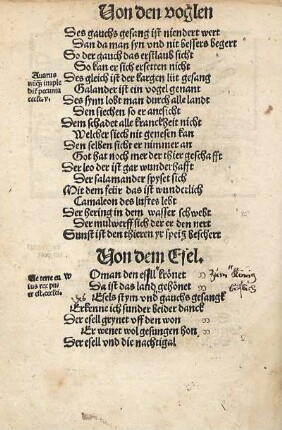 Von den voglen
Des gauchs gesang ist niendert wert
Dan da man syn vnd nit bessers begert
So der gauch das erstlaub sicht
So kan er sich ersetten nicht
Des gleich ist der kargen liit gesang
Galander ist ein vogel genant
Des synn lobt man durch alle landt
Den siechen so er ansicht
Dem schadet alle kranckheit nicht
Welcher siech nit genesen kan
Den selben sicht er nimmer an
Got hat noch mer der thier geschafft
Der leo der ist gar wunderhafft
Der salamander spyset sich
Mit dem feür das ist wunderlich
Camaleon des luftes lebt
Der hering in dem wasser schwebt
Der mulwerff sich der erden nert
Sunst ist den thieren yr speiß beschert
Auarus
non imple
bit pecunia
eccle. v.
Von dem Esel.
Wo man den esell krönet
Da ist das land gehönet
Esels stym vnd gauchs gesangk
Erkenne ich sunder beider danck
Der esell grynet vff den won
Er wenet wol gesungen hon
Der esell vnd die nachtigal
zum König